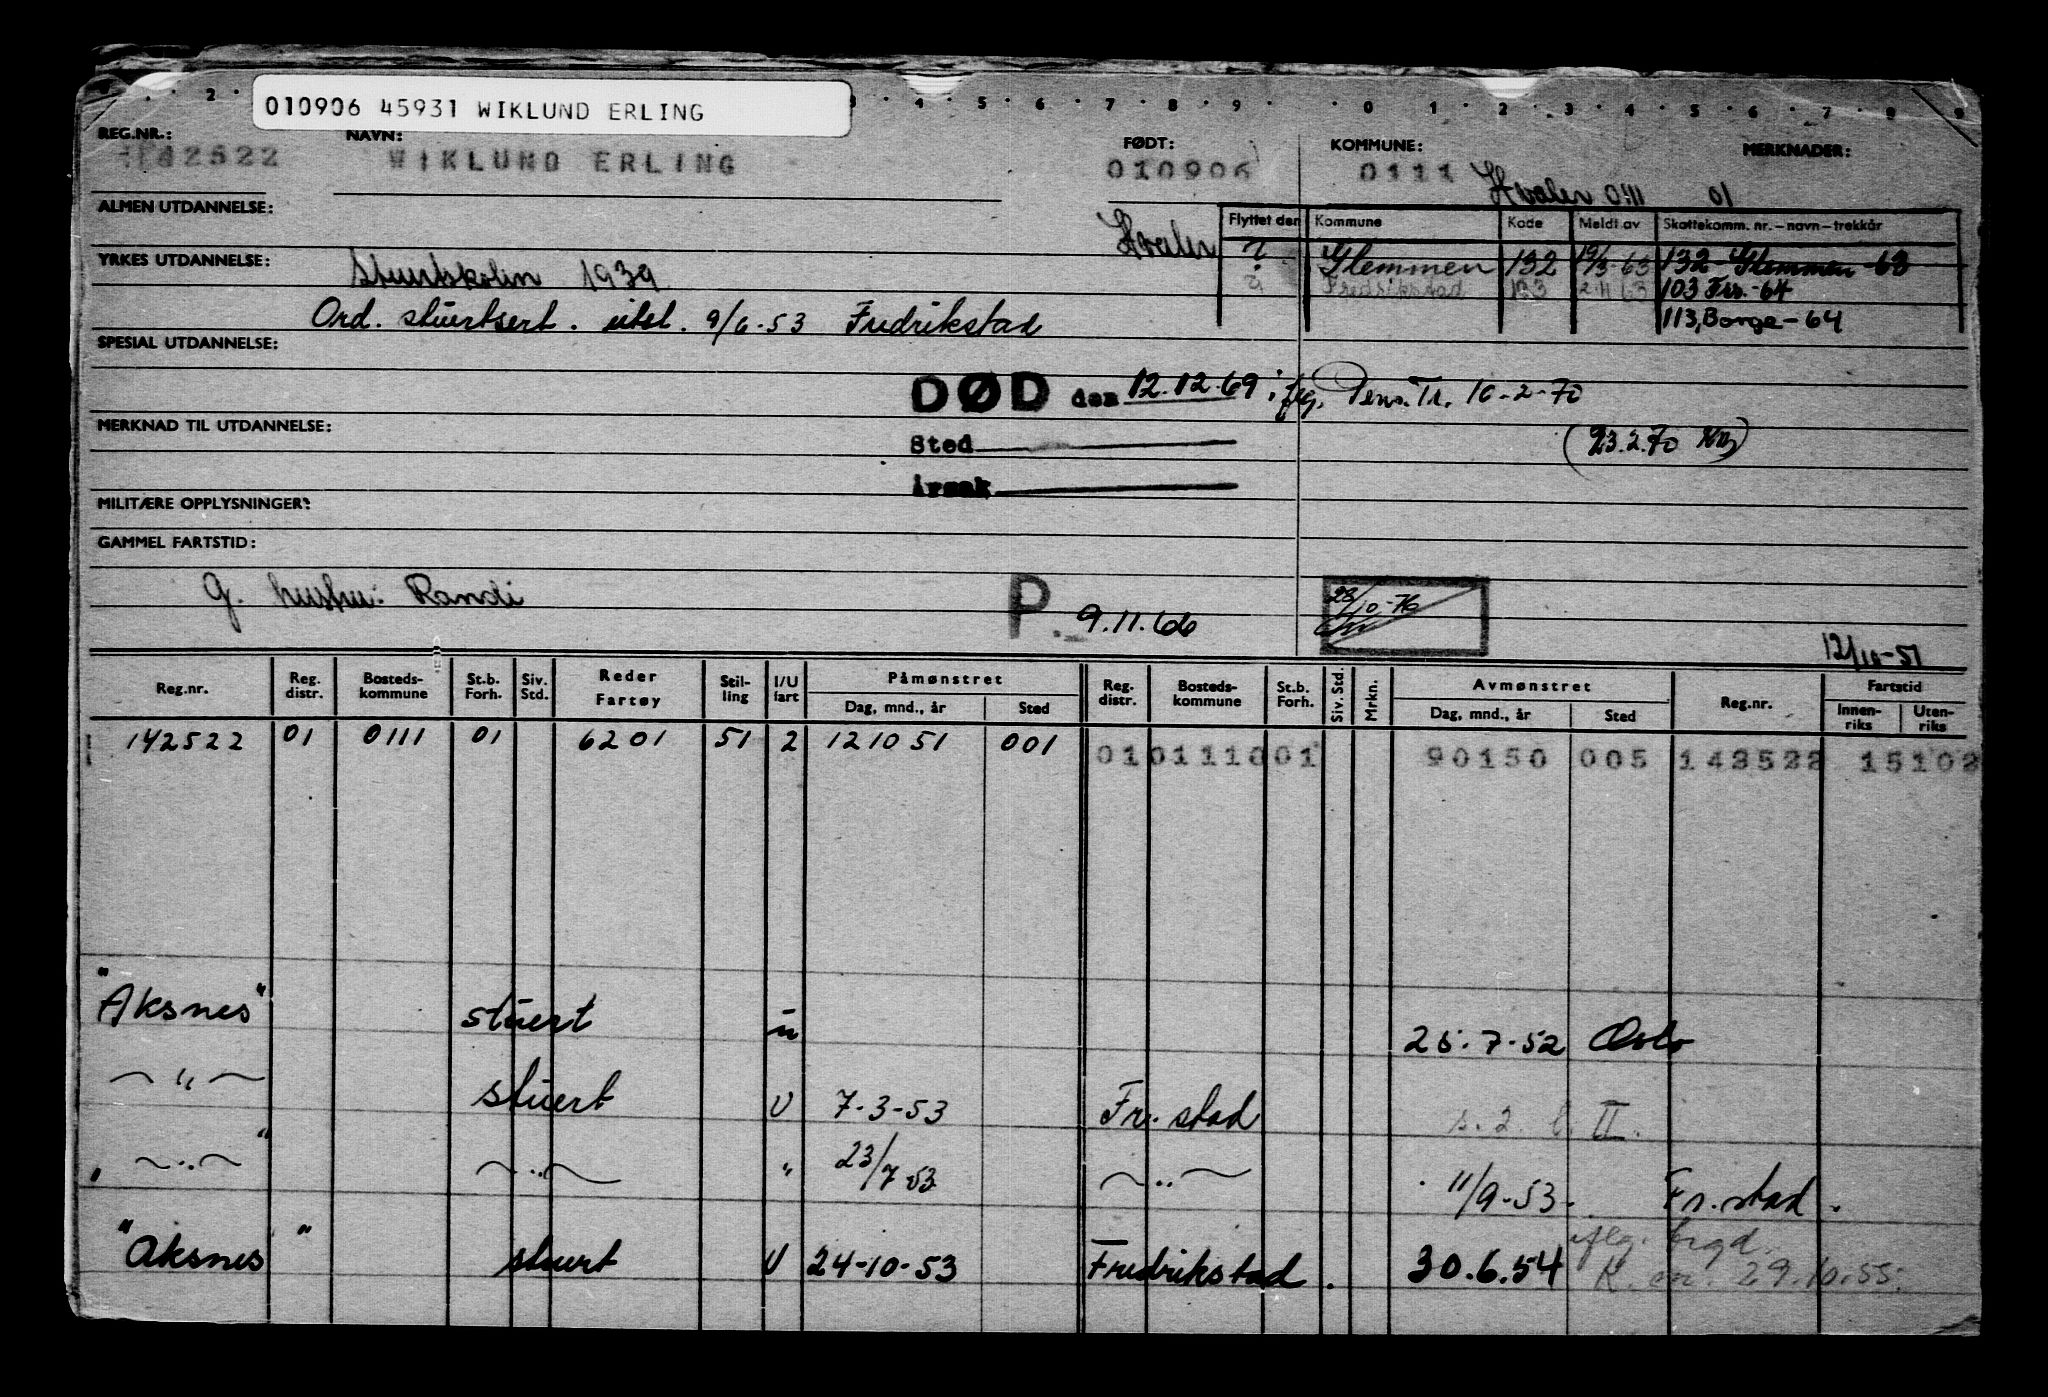 010906 45931 WIKLUND ERLING
2 3 4 5 6 7 8 9 0 1 2 3 4 5 6 7 8 9
REG.NR.: NAVN: FØDT: KOMMUNE: MERKNADER:
142522 WIKLUND ERLING 010906 0111 Hvaler 0111 01
ALMEN UTDANNELSE: Hvaler
Flyttet den Kommune Kode Meldt av Skattekomm. nr. – navn – trekkår
? Glemmen 132 19/3-63 132 - Glemmen - 63
YRKES UTDANNELSE: Stuertskolen 1939
? Fredrikstad 103 2-11 63 103 Frs. - 64
Ord. stuertsert. utst. 9/6-53 Fredrikstad
113, Borge - 64
SPESIAL UTDANNELSE:
DØD den 12.12.69 ifg. Pens.Tr. 10-2-70
MERKNAD TIL UTDANNELSE:
Sted
(23.2.70
Årsak
MILITÆRE OPPLYSNINGER:
GAMMEL FARTSTID:
g. hustru: Randi
P. 9.11.66
28/10-76
12/10-51
Reg.nr. Reg. distr. Bosteds-kommune St.b. Forh. Siv. Std. Reder Fartøy Stil-ling I/U fart Påmønstret Dag, mnd., år Sted Reg. distr. Bosteds-kommune St.b. Forh. Siv. Std. Mrkn. Avmønstret Dag, mnd., år Sted Reg.nr. Fartstid Innen-riks Uten-riks
142522 01 0111 01 6201 51 2 121051 001 01 0111 001 90150 005 142522 15102
"Aksnes" stuert u 25-7-52 Oslo
—〃— stuert U 7-3-53 Fr.stad s. 2. b. II.
—〃— —〃— 〃 23/7-53 —〃— 11/9-53 - Fr.stad.
"Aksnes" stuert U 24-10-53 Fredrikstad. 30.6.54 iflg. brgd.
29.10.55.